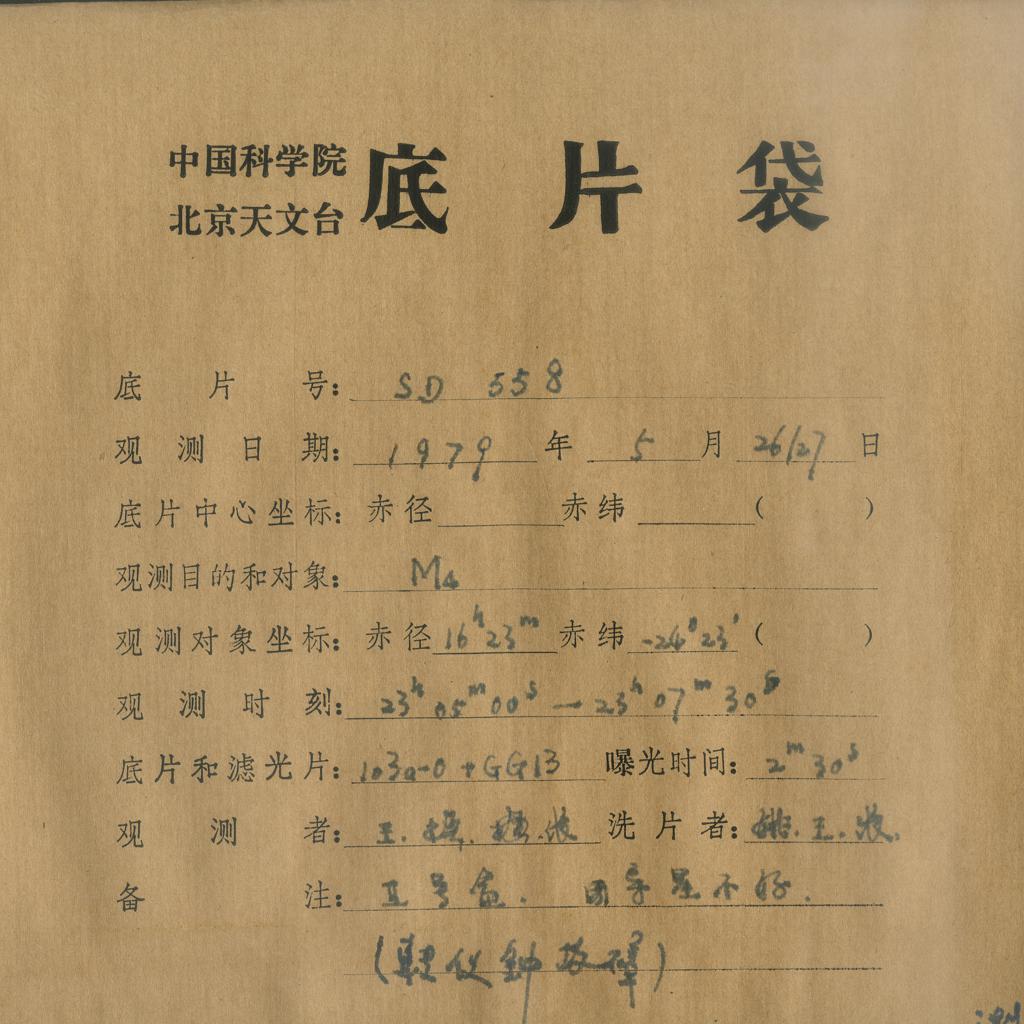 中国科学院
北京天文台 底片袋
底片号: SD 558
观测日期: 1979 年 5 月 26/27 日
底片中心坐标: 赤径 赤纬 ( )
观测目的和对象: M4
观测对象坐标: 赤径 16h23m 赤纬 -24°23' ( )
观测时刻: 23h05m00s — 23h07m30s
底片和滤光片: 103a-O + GG13 曝光时间: 2m30s
观测者: 王. 洗片者: 姚. 王.
备注: 号盒. 不好.
钟故障)